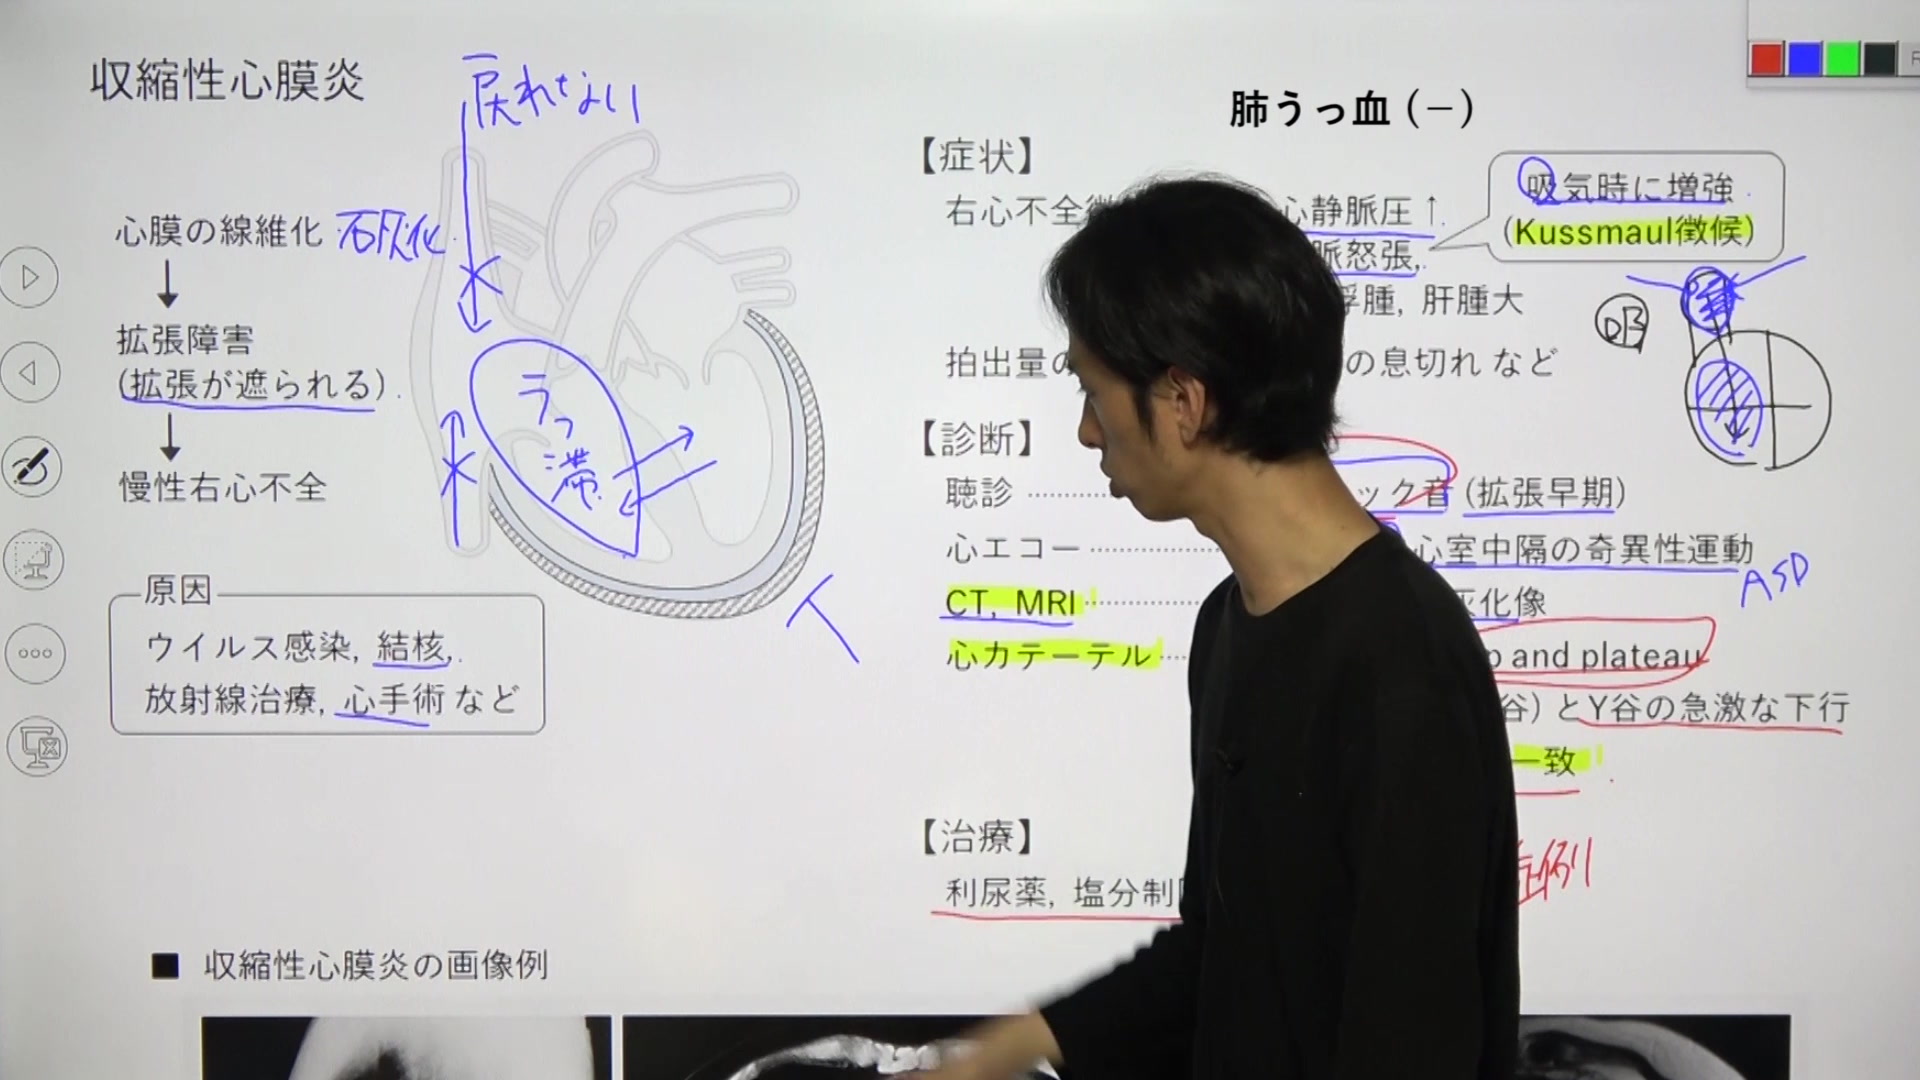 収縮性心膜炎
戻れない
心膜の線維化 石灰化
拡張障害
(拡張が遮られる)
慢性右心不全
うっ
滞
原因
ウイルス感染, 結核,
放射線治療, 心手術 など
■ 収縮性心膜炎の画像例
肺うっ血 (−)
【症状】
右心不全 心静脈圧↑
脈怒張,
浮腫, 肝腫大
拍出量の の息切れ など
吸気時に増強
(Kussmaul徴候)
吸
【診断】
聴診 ック音 (拡張早期)
心エコー 心室中隔の奇異性運動
ASD
CT, MRI 灰化像
心カテーテル p and plateau
谷) とY谷の急激な下行
一致
【治療】
利尿薬, 塩分制
症例
R